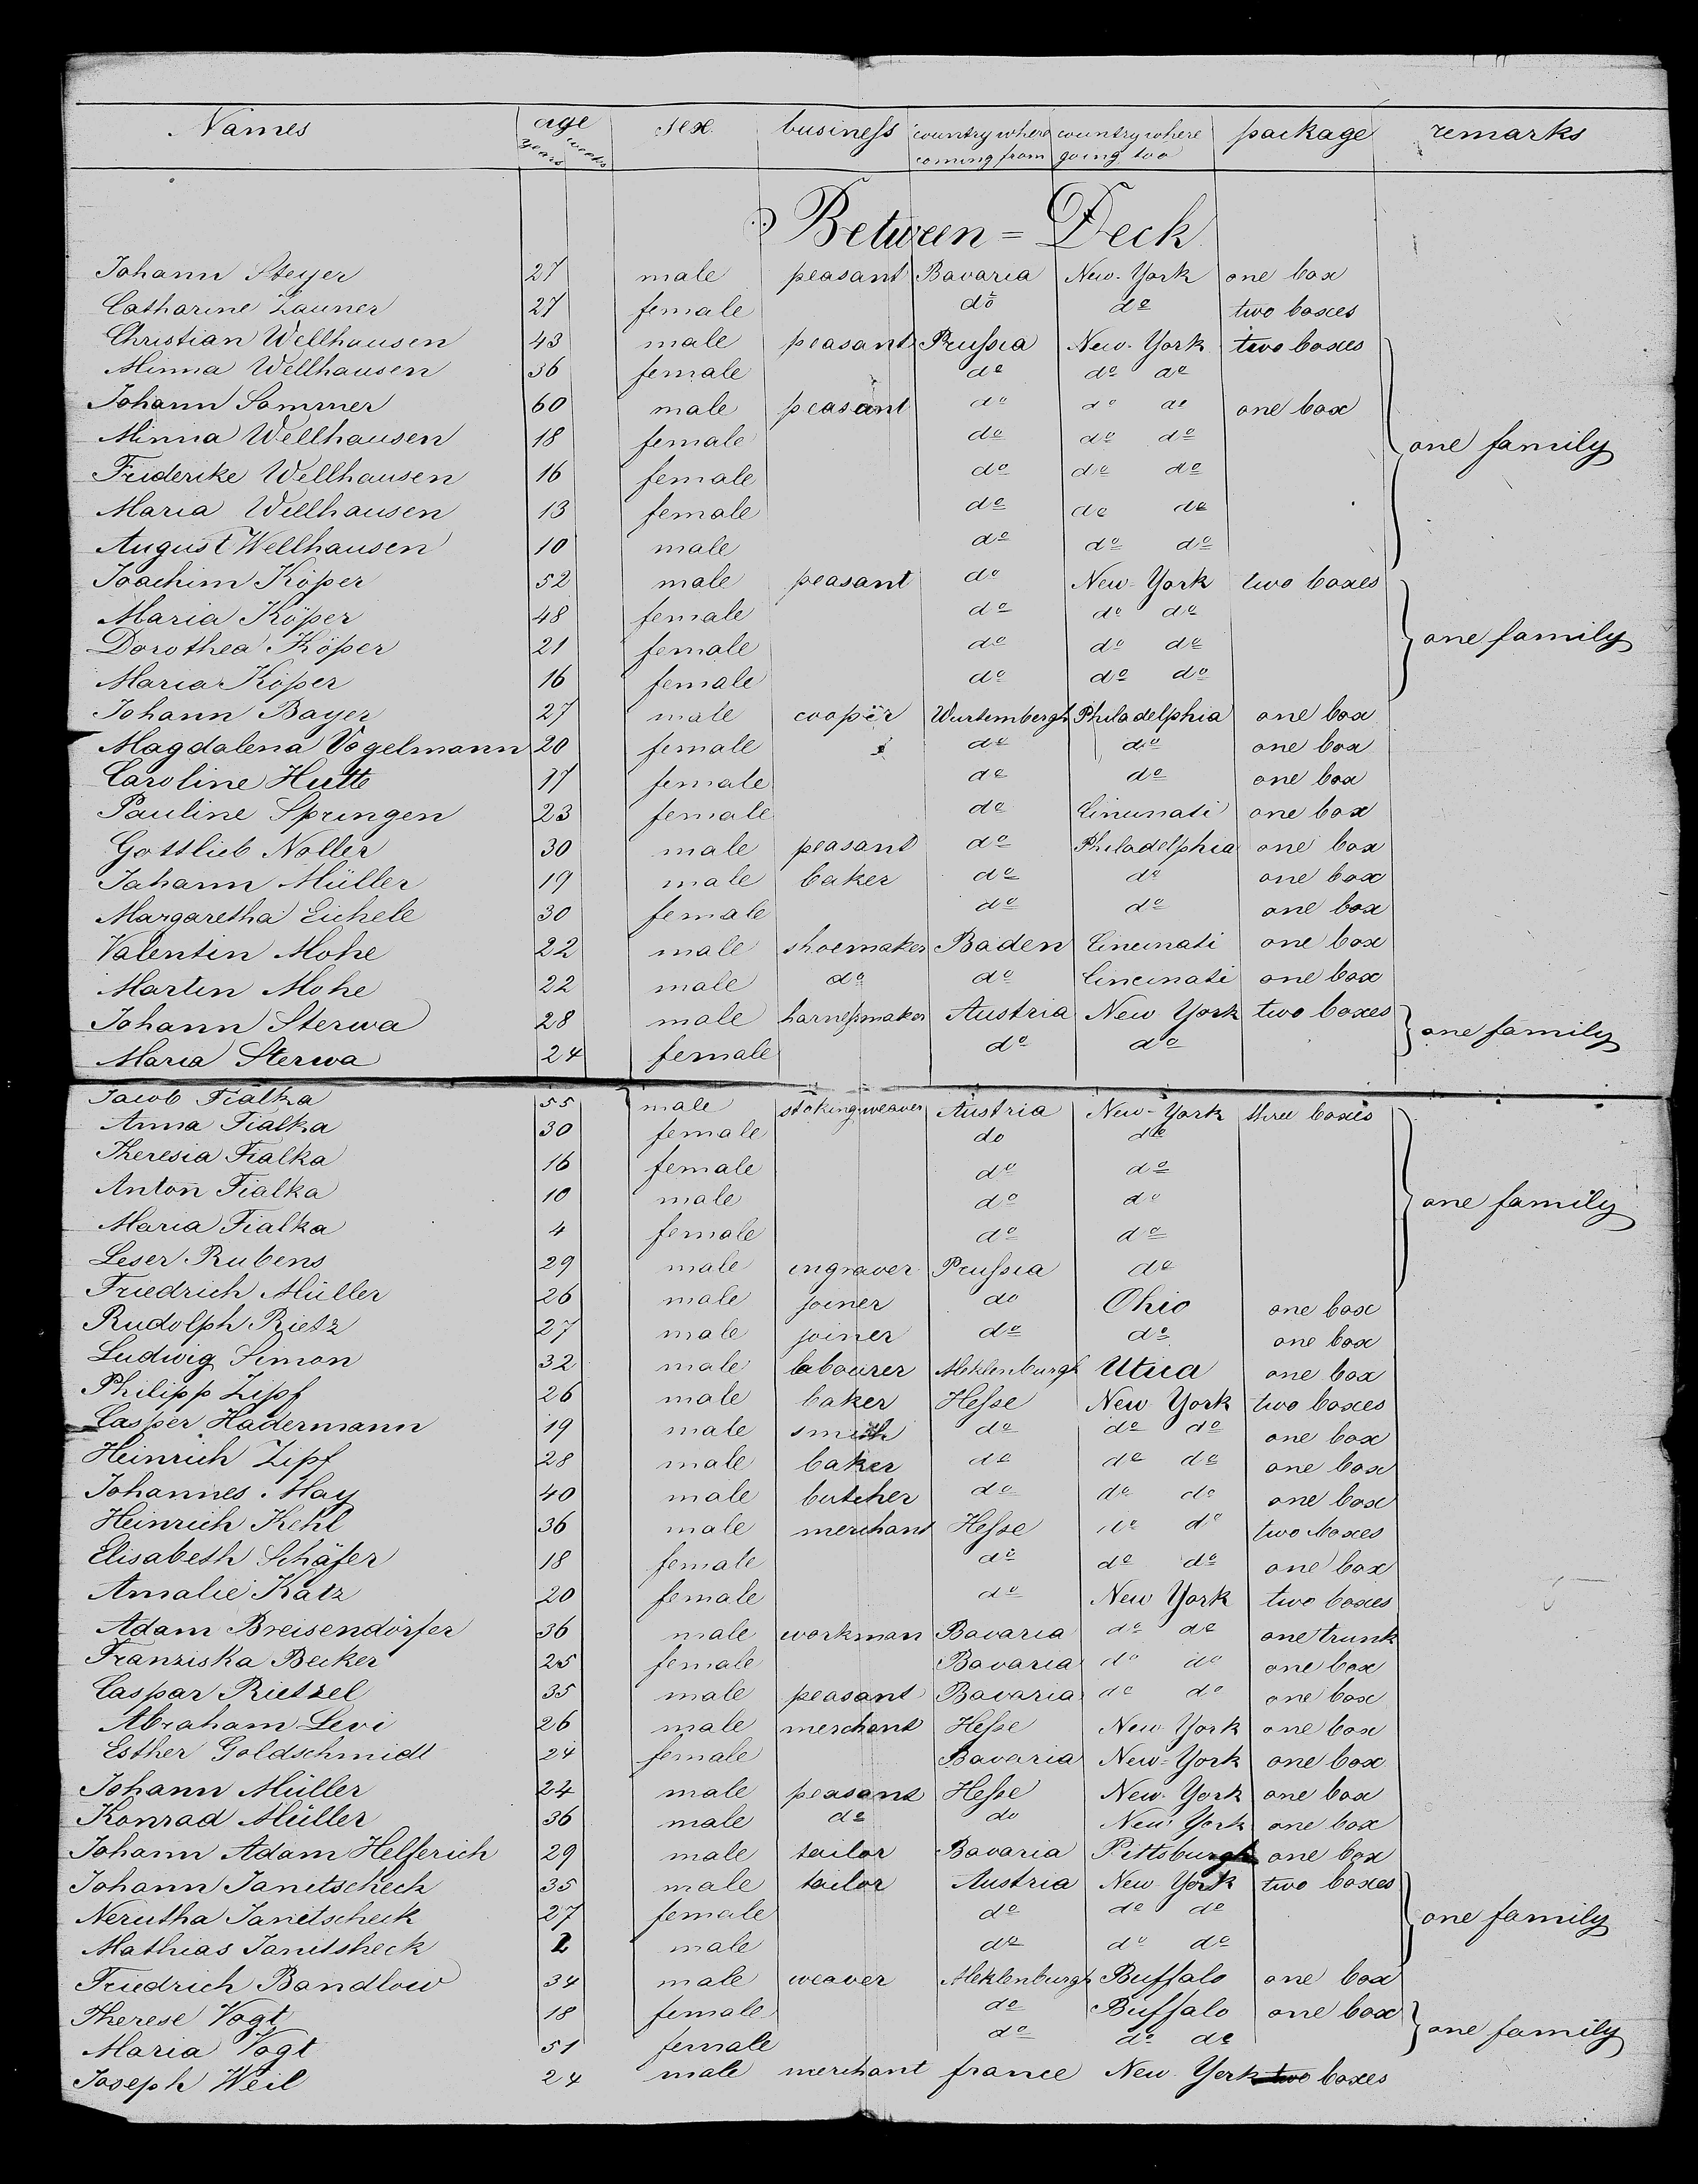 Names age years weeks sex business country where coming from country where going too package remarks
Between = Deck
Johann Steyer 27 male peasant Bavaria New-York one box
Catharine Zauner 27 female do do two boxes
Christian Wellhausen 43 male peasant Prussia New-York two boxes
Minna Wellhausen 36 female do do do
Johann Sommer 60 male peasant do do do one box
Minna Wellhausen 18 female do do do one family
Friderike Wellhausen 16 female do do do
Maria Wellhausen 13 female do do do
August Wellhausen 10 male do do do
Joachim Köper 52 male peasant do New-York two boxes
Maria Köper 48 female do do do
Dorothea Köper 21 female do do do one family
Maria Köper 16 female do do do
Johann Bayer 27 male cooper Wurtembergh Philadelphia one box
Magdalena Vogelmann 20 female do do one box
Caroline Hutt 17 female do do one box
Pauline Springen 23 female do Cincinnati one box
Gottlieb Noller 30 male peasant do Philadelphia one box
Johann Müller 19 male baker do do one box
Margaretha Eichele 30 female do do one box
Valentin Mohe 22 male shoemaker Baden Cincinati one box
Martin Mohe 22 male do do Cincinati one box
Johann Sterwa 28 male harnessmaker Austria New York two boxes one family
Maria Sterwa 24 female do do
Jacob Fialka 55 male stokingweaver Austria New-York three boxes
Anna Fialka 30 female do do
Theresia Fialka 16 female do do
Anton Fialka 10 male do do one family
Maria Fialka 4 female do do
Leser Rubens 29 male engraver Prussia do
Friedrich Müller 26 male joiner do Ohio one box
Rudolph Rietz 27 male joiner do do one box
Ludwig Simon 32 male labourer Meklenburgh Utica one box
Philipp Zipf 26 male baker Hesse New York two boxes
Casper Hadermann 19 male smith do do do one box
Heinrich Zipf 28 male baker do do do one box
Johannes May 40 male butcher do do do one box
Heinrich Kehl 36 male merchant Hesse do do two boxes
Elisabeth Schäfer 18 female do do do one box
Amalie Katz 20 female do New York two boxes
Adam Breisendörfer 36 male workman Bavaria do do one trunk
Franziska Becker 25 female Bavaria do do one box
Caspar Rietzel 35 male peasant Bavaria do do one box
Abraham Levi 26 male merchant Hesse New York one box
Esther Goldschmidt 24 female Bavaria New-York one box
Johann Müller 24 male peasant Hesse New-York one box
Konrad Müller 36 male do do New York one box
Johann Adam Helferich 29 male tailor Bavaria Pittsburgh one box
Johann Janetscheck 35 male tailor Austria New York two boxes
Nerutha Janetscheck 27 female do do do one family
Mathias Janitsheck 2 male do do do
Friedrich Bandlow 34 male weaver Meklenburgh Buffalo one box
Therese Vogt 18 female do Buffalo one box one family
Maria Vogt 51 female do do do
Joseph Weil 24 male merchant france New York two boxes